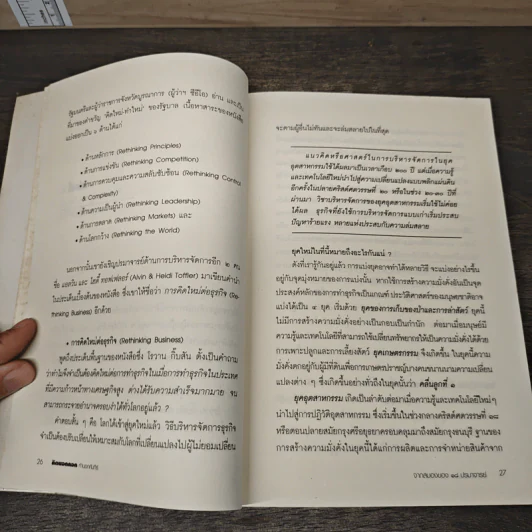 รัฐมนตรีและผู้ว่าราชการจังหวัดบูรณาการ (ผู้ว่าฯ ซีอีโอ) อ่าน และเป็น
ที่มาของคำขวัญ "คิดใหม่-ทำใหม่" ของรัฐบาล เนื้อหาสาระของหนังสือ
แบ่งออกเป็น ๖ ด้านได้แก่
• ด้านหลักการ (Rethinking Principles)
• ด้านการแข่งขัน (Rethinking Competition)
• ด้านการควบคุมและความสลับซับซ้อน (Rethinking Control
& Complexity)
• ด้านความเป็นผู้นำ (Rethinking Leadership)
• ด้านการตลาด (Rethinking Markets) และ
• ด้านโลกกว้าง (Rethinking the World)
นอกจากนั้นเขายังเชิญปรมาจารย์ด้านการบริหารจัดการอีก ๒ คน
ชื่อ แอลวิน และ ไฮดี้ ทอฟเฟลอร์ (Alvin & Heidi Toffler) มาเขียนคำนำ
ในประเด็นเบื้องต้นของหนังสือ ซึ่งเขาให้ชื่อว่า การคิดใหม่ต่อธุรกิจ (Re-
thinking Business) อีกด้วย
• การคิดใหม่ต่อธุรกิจ (Rethinking Business)
พูดถึงประเด็นพื้นฐานของหนังสือซึ่ง โรวาน กิ๊บสัน ตั้งเป็นคำถาม
ว่าทำไมจึงจำเป็นต้องคิดใหม่ต่อการทำธุรกิจในเมื่อการทำธุรกิจในประเทศ
ที่มีความก้าวหน้าทางเศรษฐกิจสูง ต่างได้รับความสำเร็จมากมาย จน
สามารถกระจายอำนาจครอบงำได้ทั่วโลกอยู่แล้ว ?
คำตอบสั้น ๆ คือ โลกได้เข้าสู่ยุคใหม่แล้ว วิธีบริหารจัดการธุรกิจ
จำเป็นต้องปรับเปลี่ยนให้เหมาะสมกับโลกที่เปลี่ยนแปลงไปผู้ไม่ยอมเปลี่ยน
26
จะตามผู้อื่นไม่ทันและจะล่มสลายไปในที่สุด
แนวคิดหรือศาสตร์ในการบริหารจัดการในยุค
อุตสาหกรรมใช้ได้ผลมาเป็นเวลาเกือบ ๒๐๐ ปี แต่เมื่อความรู้
และเทคโนโลยีใหม่นำไปสู่ความเปลี่ยนแปลงแบบพลิกแผ่นดิน
อีกครั้งในปลายคริสต์ศตวรรษที่ ๒๐ หรือในช่วง ๒๐-๓๐ ปีที่
ผ่านมา วิชาบริหารจัดการของยุคอุตสาหกรรมเริ่มใช้ไม่ค่อย
ได้ผล ธุรกิจที่ยังใช้การบริหารจัดการแบบเก่าเริ่มประสบ
ปัญหาร้ายแรง หลายแห่งประสบกับความล่มสลาย
ยุคใหม่ในที่นี้หมายถึงอะไรกันแน่ ?
ดังที่เรารู้กันอยู่แล้ว การแบ่งยุคอาจทำได้หลายวิธี จะแบ่งอย่างไรขึ้น
อยู่กับจุดมุ่งหมายของการแบ่งนั้น หากใช้การสร้างความมั่งคั่งอันเป็นจุด
ประสงค์หลักของการทำธุรกิจเป็นเกณฑ์ ประวัติศาสตร์ของมนุษยชาติอาจ
แบ่งได้เป็น ๔ ยุค เริ่มด้วย ยุคของการเก็บของป่าและการล่าสัตว์ ยุคนี้
ไม่มีการสร้างความมั่งคั่งอย่างเป็นกอบเป็นกำนัก ต่อมาเมื่อมนุษย์มี
ความรู้และเทคโนโลยีที่สามารถใช้เปลี่ยนทรัพยากรให้เป็นความมั่งคั่งได้ด้วย
การเพาะปลูกและการเลี้ยงสัตว์ ยุคเกษตรกรรม จึงเกิดขึ้น ในยุคนี้ความ
มั่งคั่งตกอยู่กับผู้มีที่ดินเพื่อการเกษตรปราชญ์บางคนขนานนามความเปลี่ยน
แปลงต่าง ๆ ซึ่งเกิดขึ้นอย่างทั่วถึงในยุคนั้นว่า คลื่นลูกที่ ๑
ยุคอุตสาหกรรม เกิดเป็นลำดับต่อมาเมื่อความรู้และเทคโนโลยีใหม่ๆ
นำไปสู่การปฏิวัติอุตสาหกรรม ซึ่งเริ่มขึ้นในช่วงกลางคริสต์ศตวรรษที่ ๑๘
หรือตอนปลายสมัยกรุงศรีอยุธยาครอบคลุมมาถึงสมัยกรุงธนบุรี ฐานของ
การสร้างความมั่งคั่งในยุคนี้ได้แก่การผลิตและการจำหน่ายสินค้าจาก
จากสมองของ ๑๘ ปรมาจารย์ 27